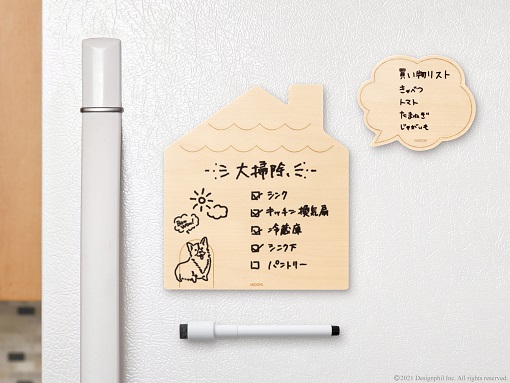 大掃除、
シンク
キッチン換気扇
冷蔵庫
シンク下
パントリー
MIDORI
買い物リスト
きゃべつ
トマト
たまねぎ
じゃがいも
MIDORI
©2021 Designphil Inc. All rights reserved.